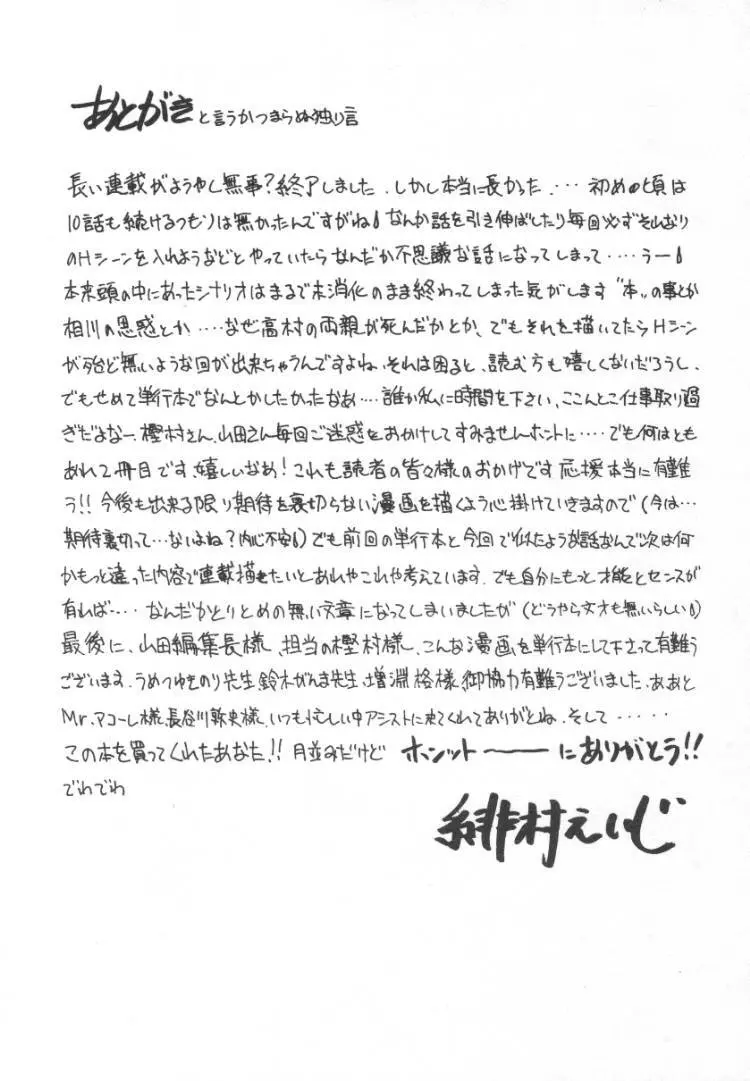 あとがきと言うかつまらぬ独り言
長い連載がようやく無事?終了しました.しかし本当に長かった.… 初めの頃は
10話も続けるつもりは無かったんですがね なんか話を引き伸ばしたり毎回必ずそれなり
のHシーンを入れようなどとやっていたらなんだか不思議な話になってしまって‥‥うー
本来頭の中にあったシナリオはまるで未消化のまま終わってしまった気がします“本„の事とか
相川の思惑とか‥‥なぜ高村の両親が死んだかとか、でもそれを描いてたらHシーン
が殆ど無いような回が出来ちゃうんですよね.それは困ると、読む方も嬉しくないだろうし.
でもせめて単行本でなんとかしたかったなあ‥‥誰か私に時間を下さい、ここんとこ仕事取り過
ぎだよなー.樫村さん、山田さん毎回ご迷惑をおかけしてすみませんホントに‥‥でも何はとも
あれ2冊目です、嬉しいなあ!これも読者の皆々様のおかげです応援本当に有難
う!!今後も出来る限り期待を裏切らない漫画を描くよう心掛けていきますので(今は…
期待裏切って…ないよね?内心不安)でも前回の単行本と今回で似たような話なんで次は何
かもっと違った内容で連載描きたいとあれやこれや考えています.でも自分にもっと才能とセンスが
有れば‥‥なんだかとりとめの無い文章になってしまいましたが(どうやら文才も無いらしい)
最後に、山田編集長様、担当の樫村様、こんな漫画を単行本にして下さって有難う
ございます.うめつゆきのり先生、鈴木がんま先生、増淵格様、御協力有難うございました、ああと
Mr.アコーレ様、長谷川史様、いつも忙しい中アシストに来てくれてありがとね.そして‥‥
この本を買ってくれたあなた!!月並みだけど ホンットーーにありがとう!!
でわでわ
緋村えいじ